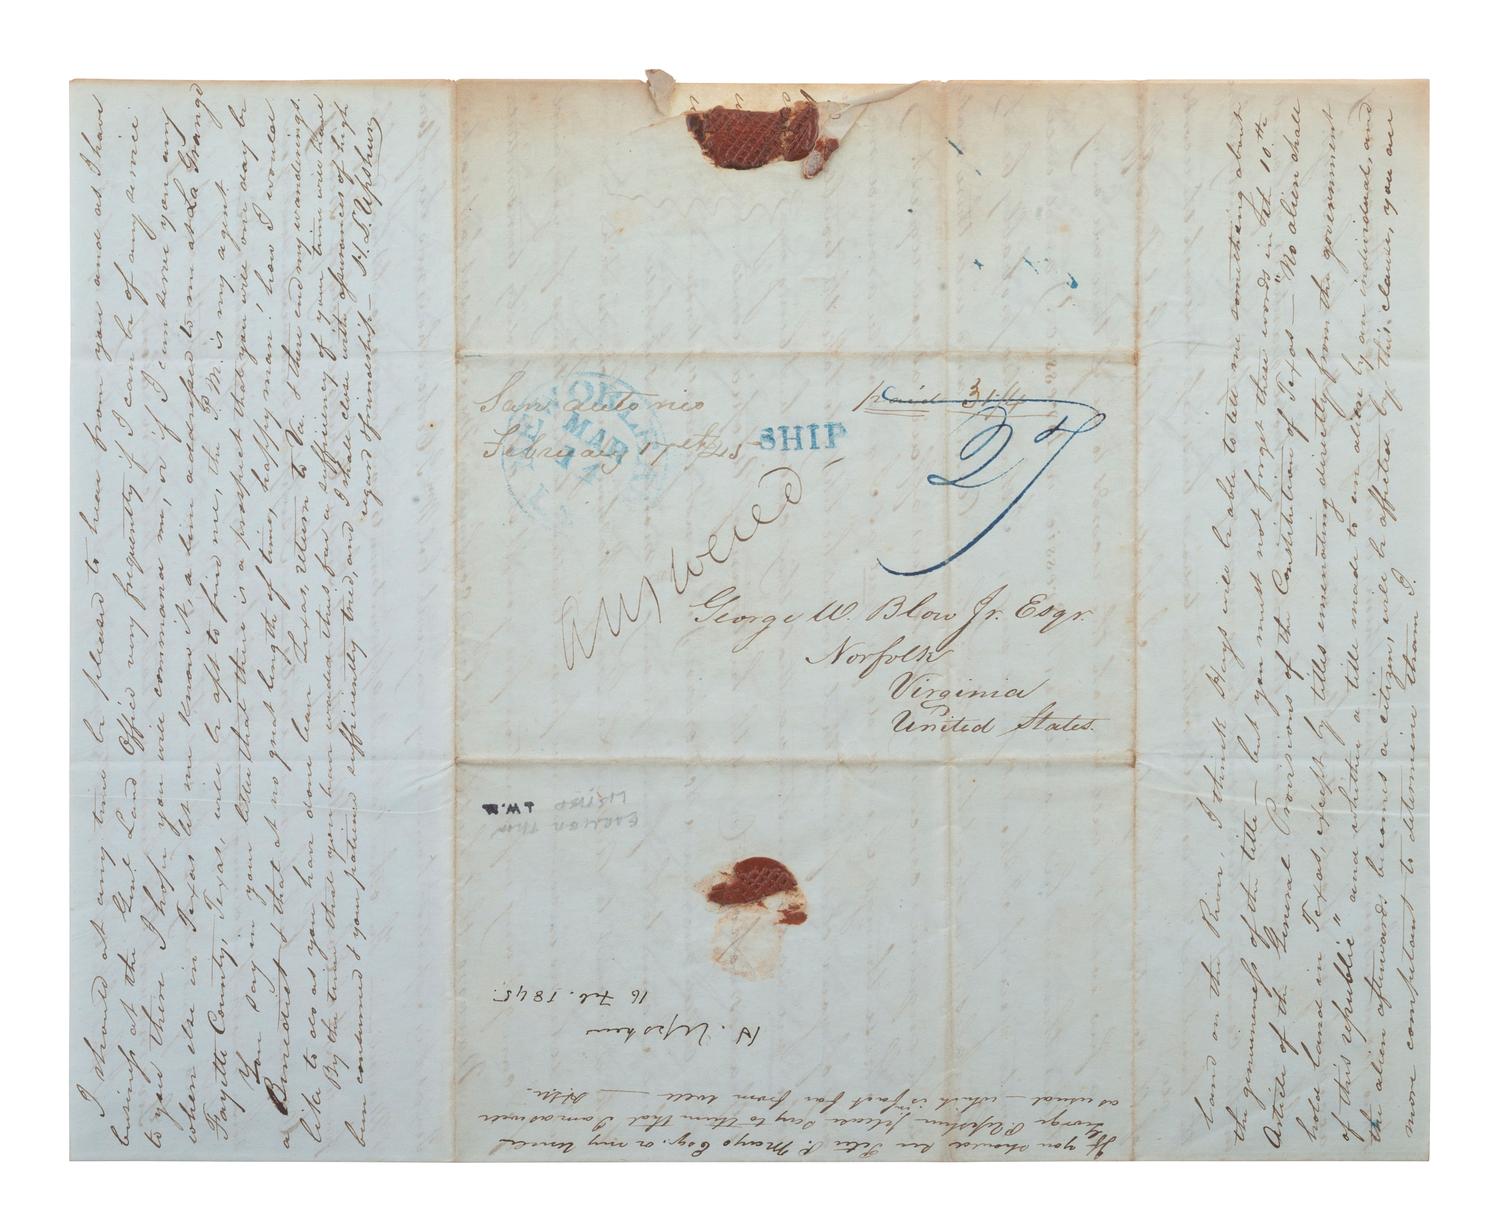 land on the River, I think Hays will be able to tell me something about
the genuineness of the title, but you must not forget these words in Sect 10.th
Article of the General Provisions of the Constitution of Texas — "No alien shall
hold land in Texas, except by titles emanating directly from the government
of this republic" and whether a title made to an alien by an individual, and
the alien afterwards becomes a citizen, will be affected by this clause, you are
more competent to determine than I.
I should at any time be pleased to hear from you and as I have
business at the Genl Land Office very frequently if I can be of any service
to you there I hope you will command me, or if I can serve you any
where else in Texas let me know it, a line addressed to me at La Grange
Fayette County, Texas, will be apt to find me, the P.M. is my agent.
You say in your letter that there is a prospect that you will one day be
a Benedict & that at no great length of time, happy man! how I would
like to do as you have done leave Texas, return to Va. & there end my wanderings.
By the time that you have waded thus far a sufficiency of your time will have
been consumed & your patience sufficiently tried, and I shall close with assurances of high
regard & friendship— H. L. Upshur
San Antonio
February 17th /45
paid 31¼
MAR
SHIP
Answered
George W. Blow Jr. Esqr.
Norfolk
Virginia
United States.
T.W.
LISTED
EARLIER THAN
16 Feb. 1845.
H. Upshur
If you should see Peter P. Mayo Esq. or my friend
George P. Upshur, please say to them that I am as well
as usual — which is in fact far from well — HLU.